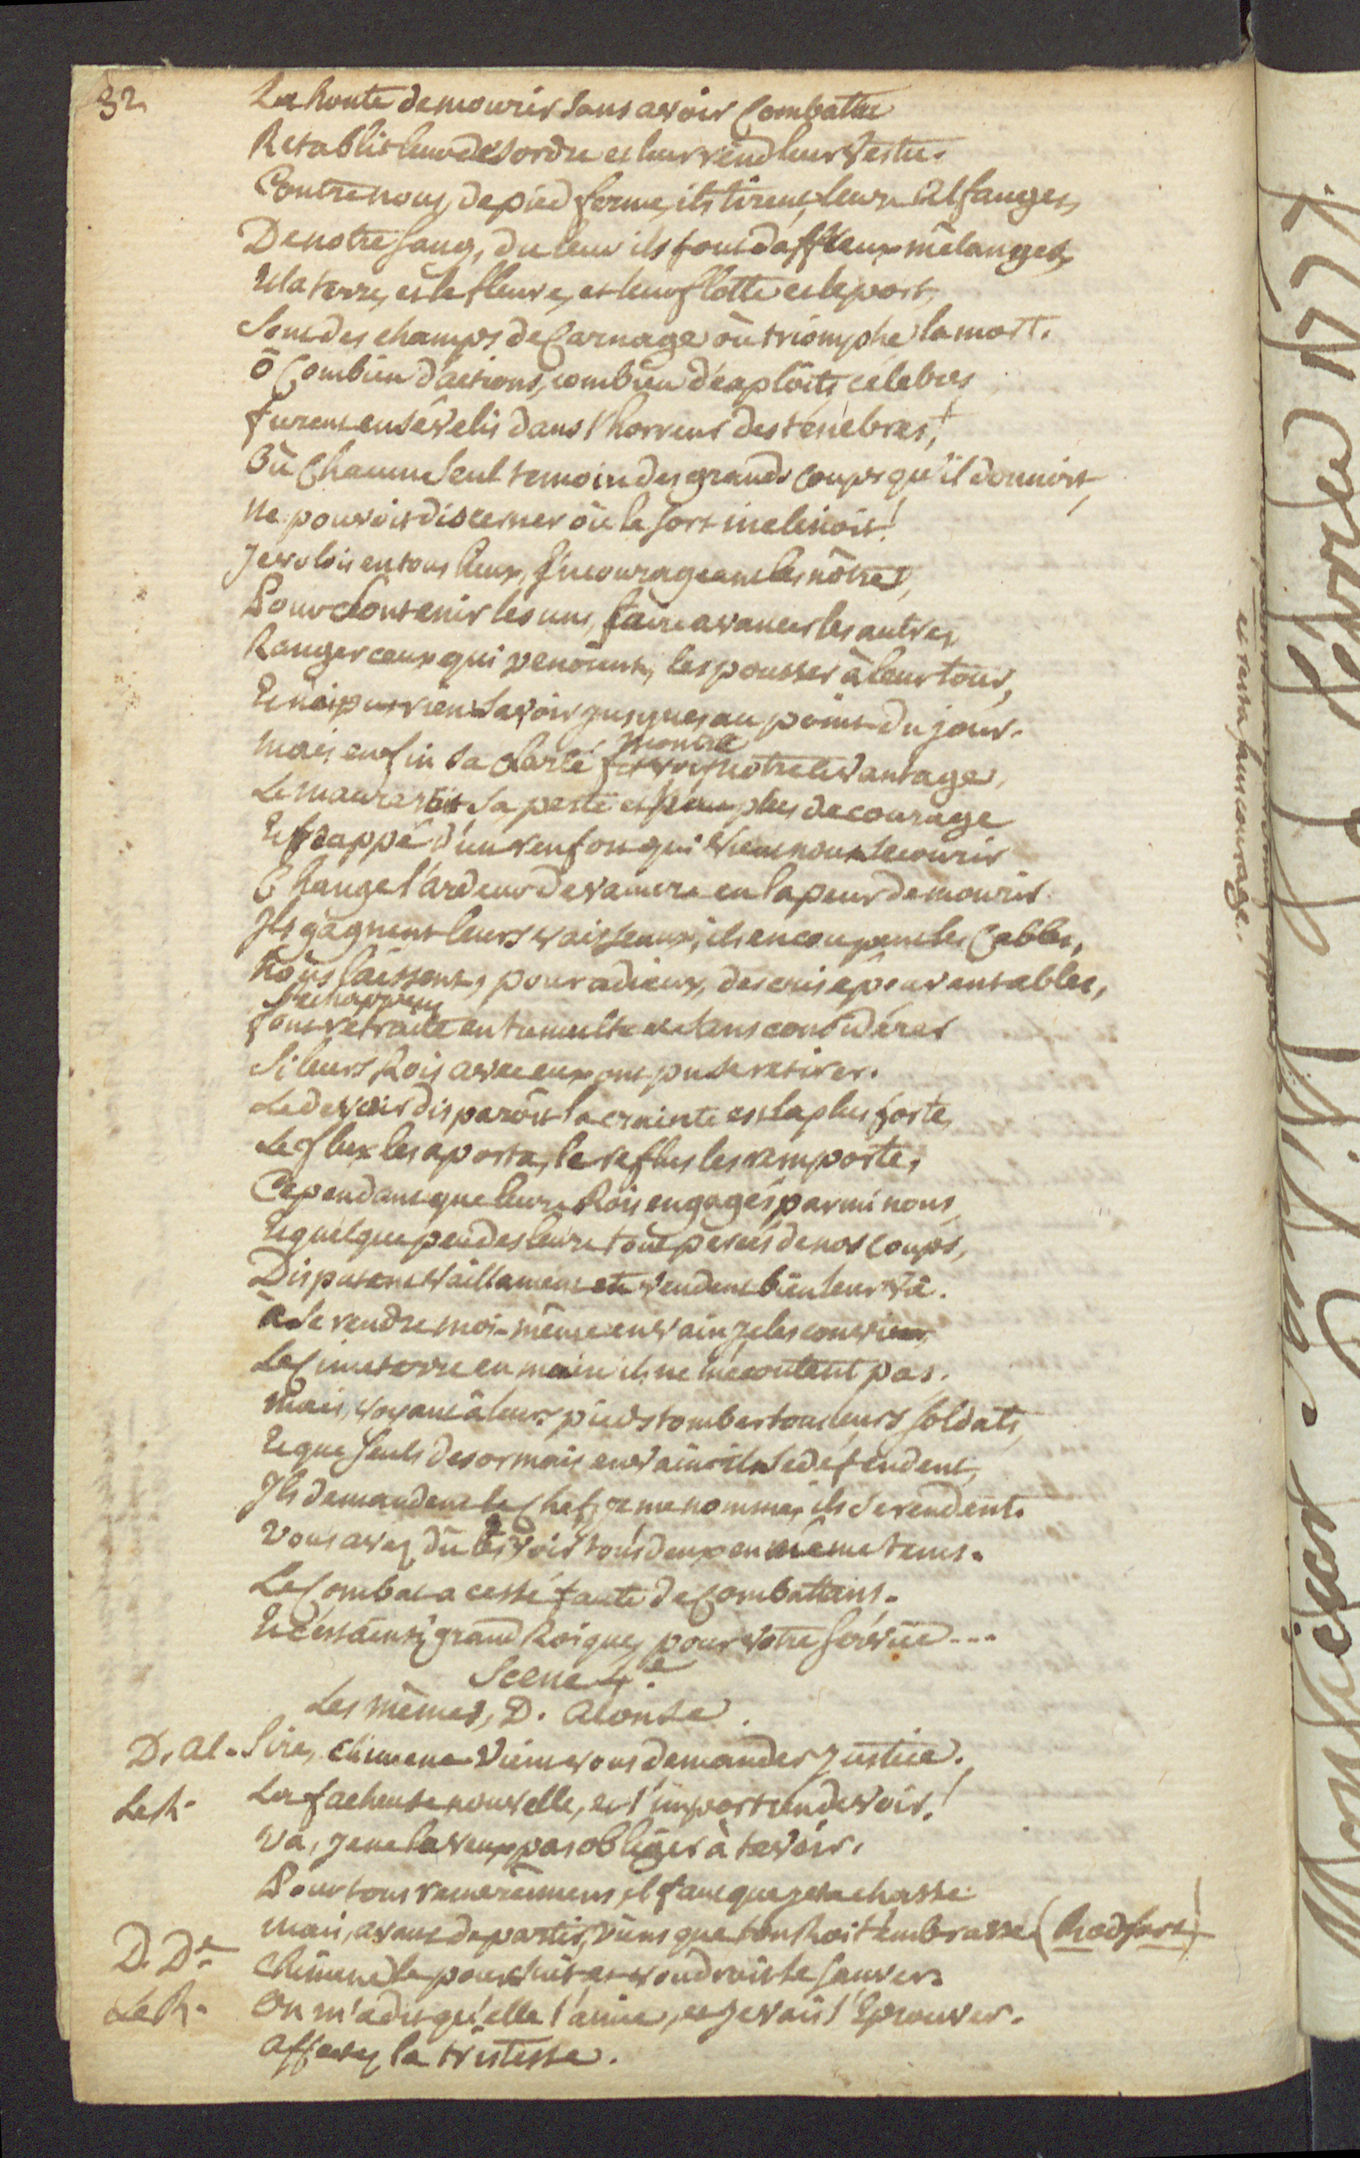 32
La honte de mourir sans avoir Combattu
Retablit leur désordre et leur rend leur vertu.
Contre nous, de pied ferme, ils tirent leurs Alfanges,
De notre sang, du leur ils font d'affreux mêlanges,
Et la terre, et le fleuve, et leur flotte et le port,
Sont des champs de Carnage où triomphe la mort.
ô Combien d'actions, combien d'exploits célebres
furent ensévelis dans l'horreur des ténébres!
Où Chacun seul temoin des grands coups qu'il donnoit,
Ne pouvoit discerner où le sort inclinoit!
J'evolois en tous lieux, Encourageant les nôtres,
Pour soutenir les uns, faire avancer les autres,
Ranger ceux qui venoient, les pousser à leur tour,
Et n'ai pu rien savoir jusques au point du jour.
montra
Mais enfin sa clarté fit voir notre avantage,
Le maure vit sa perte et n'eut plus de courage
Et frappé d'un renfort qui vient nous secourir
Change l'ardeur de vaincre en la peur de mourir.
Ils gagnent leurs vaisseaux, ils en coupent les Cables,
Nous laissent, pour adieux, des cris épouventables,
S'echappent
font retraite en tumulte et sans considérer
Si leurs Rois avec eux ont pu se retirer.
Le devoir disparoit la crainte est la plus forte,
Le flux les aporta, le reflus les remporte,
Cependant que leurs Rois engagés parmi nous,
Et quelque peu des leurs tous percés de nos coups,
Disputent vaillament et vendent bien leur vie.
à se rendre moi-même en vain je les convie,
Le Cimeterre en main ils ne m'écoutent pas.
Mais, voyant à leurs pieds tomber tous leurs soldats,
Et que seuls desormais en vain ils se défendent,
Ils demandent le Chef, je me nomme, ils se rendent.
Vous avez dû les voir tous deux en même tems.
Le Combat a cessé faute de Combattans.
Et c'est ainsi, grand Roi que, pour votre service....
Scene 4.e
Les mêmes, D. Alonse.
D. Al. Sire, chimene vient vous demander justice.
Le R. La facheuse nouvelle, et l'importun devoir!
Va, je ne la veux pas obliger à te voir.
Pour tous remercimens il faut que je te chasse
Mais, avant de partir, viens que ton Roi t'embrasse (Rod. sort)
D. De. Chimene le poursuit et voudroit le sauver.
Le R. On m'a dit qu'elle l'aime, et je vais l'éprouver.
Affectez la tristesse.
et resta sans courage.